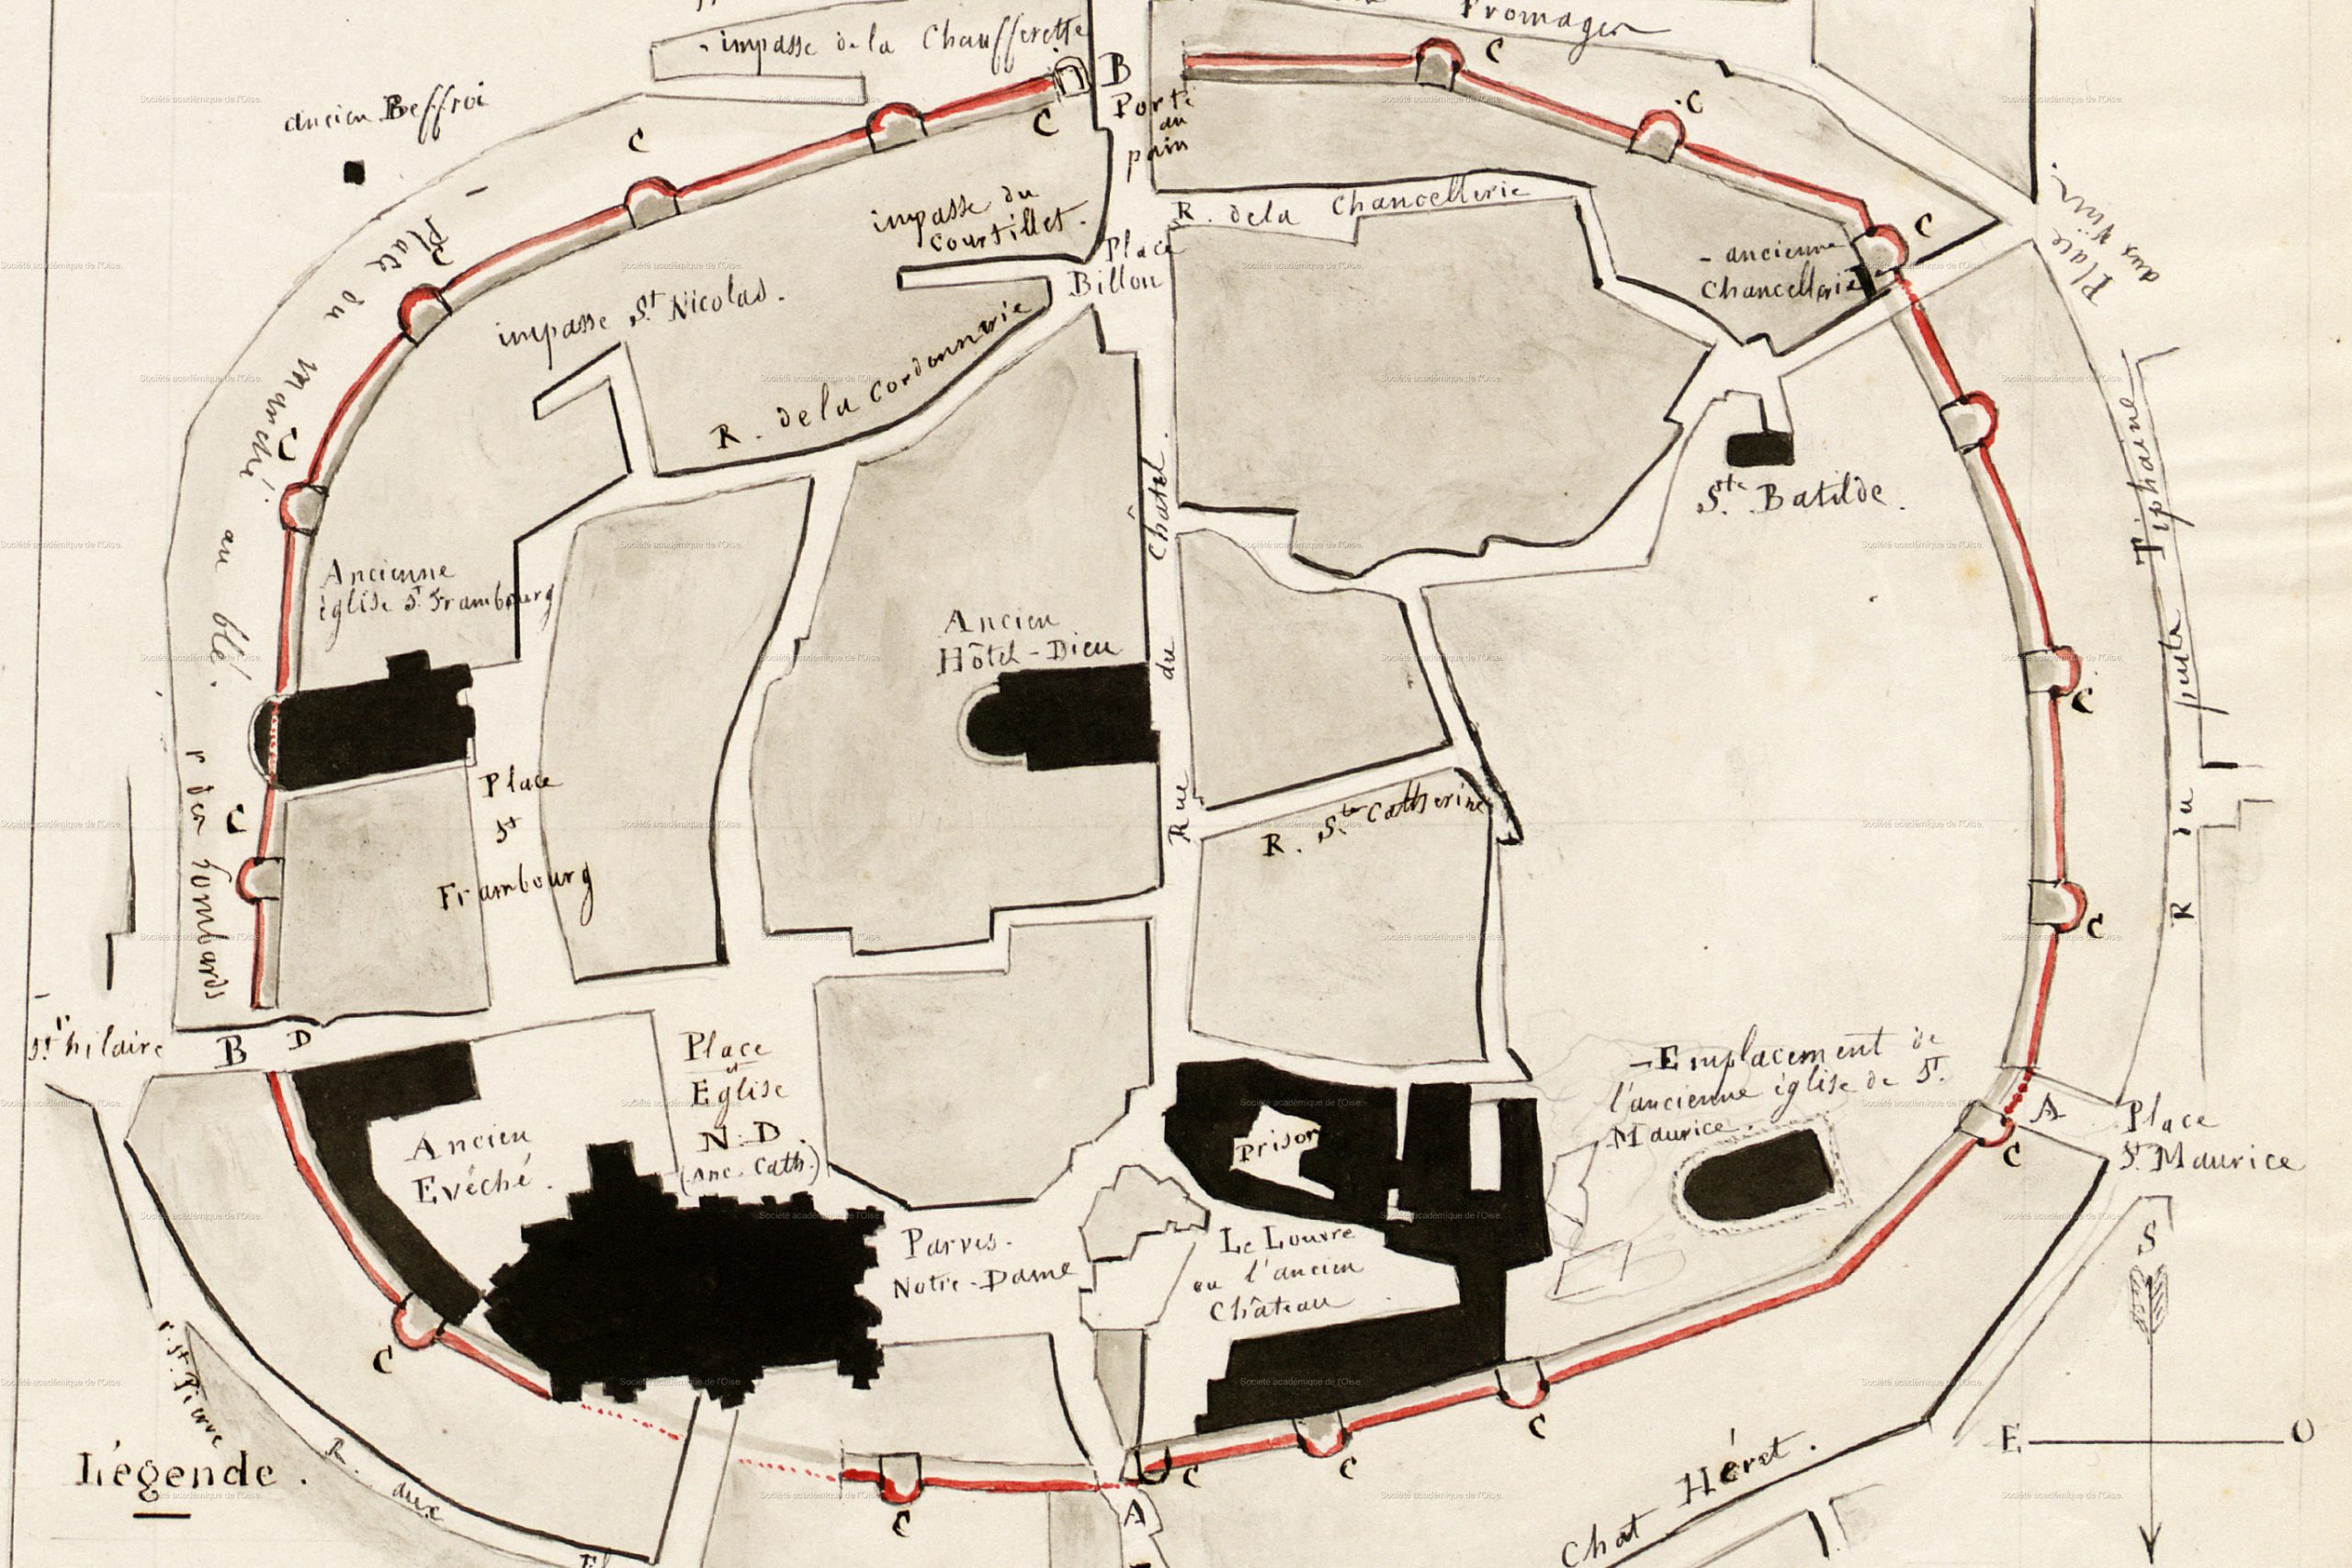 impasse de la Chaufferette
Fromager
ancien Beffroi
B
Porte
au
pain
C
C
C
C
C
C
Place du Marché au blé.
impasse du
Courtillet.
R. de la Chancellerie
Place
Billon
Place
aux
- ancienne
Chancellerie
impasse St Nicolas.
R. de la Cordonnerie
C
Ste Batilde.
R du puits Tiphaine
Rue du Châtel.
Ancienne
église St Frambourg
Ancien
Hôtel-Dieu
C
C
C
r des Lombards
Place
St
Frambourg
R. Ste Catherine
St hilaire
B
D
Place
et
Eglise
N.D.
(anc. Cath.)
Ancien
Evéché.
Prison
- Emplacement de
l'ancienne église de St.
Maurice.
A
C
Place
St Maurice
Parvis.
Notre-Dame
Le Louvre
ou l'ancien
Château
S
E
O
C
r. St Pierre
R. aux
Légende.
C
C
C
C
A
Chat Héret.
Société académique de l'Oise.